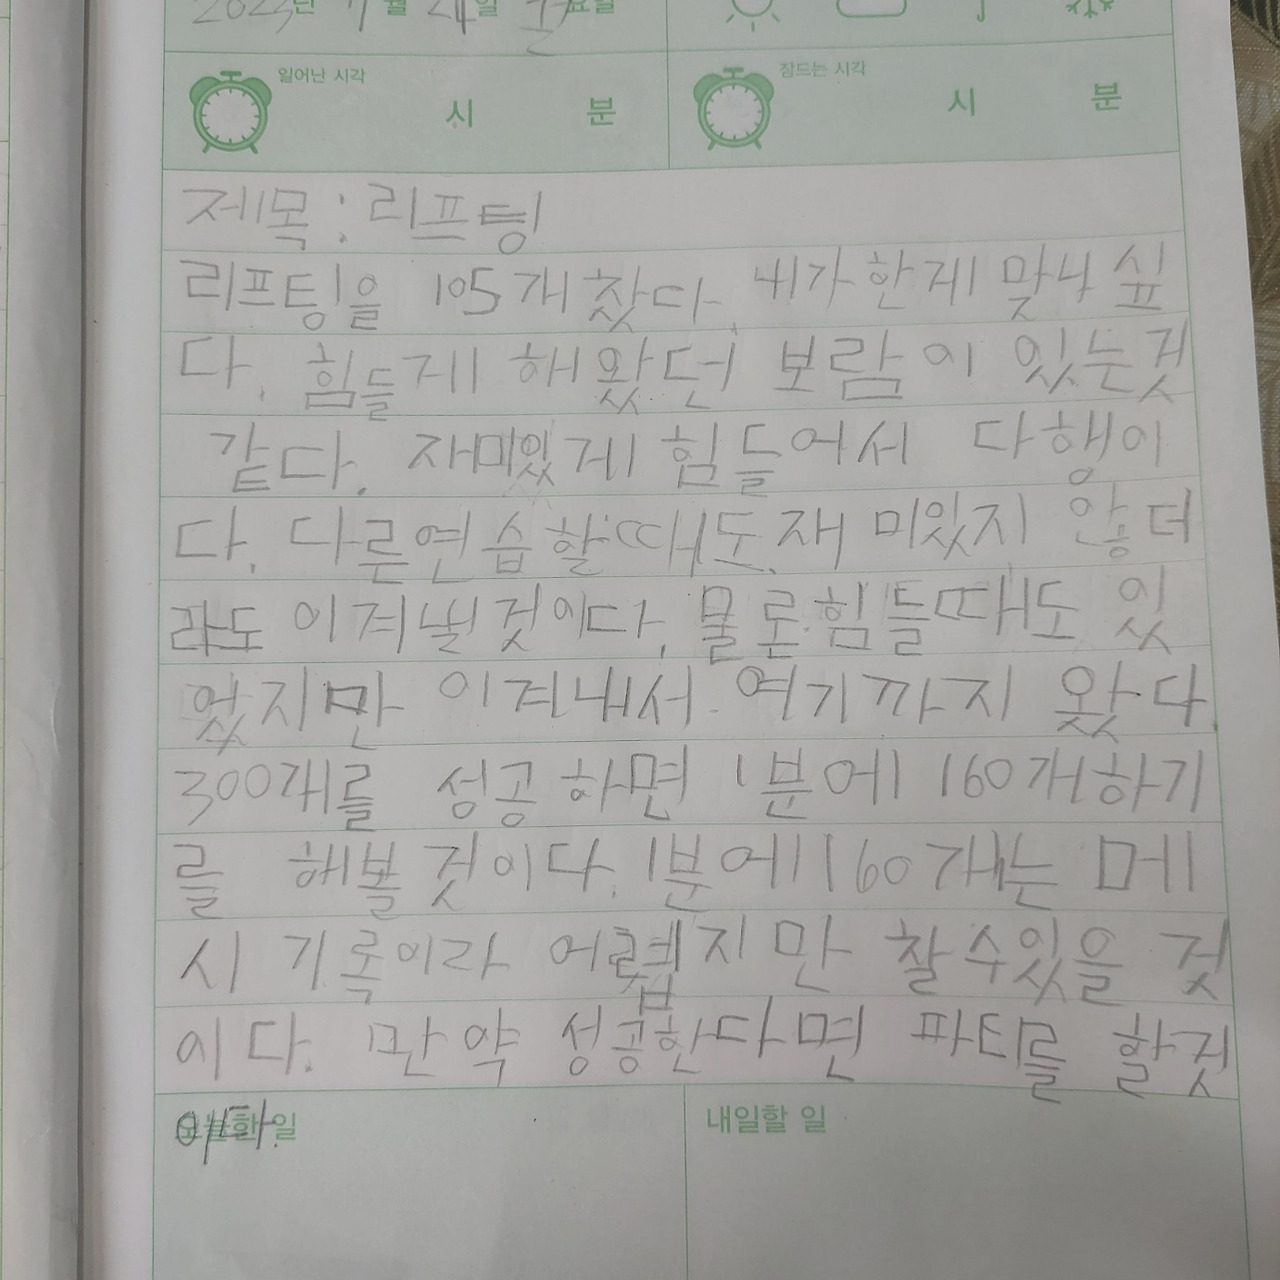 2023년 7월 24일 요일
일어난 시각 잠드는 시각
시 분 시 분
제목: 리프팅
리프팅을 105개 찼다. 내가한게 맞나 싶
다. 힘들게 해왔던 보람이 있는것
같다. 재미있게 힘들어서 다행이
다. 다른연습할때도 재미있지 않더
라도 이겨낼것이다. 물론 힘들때도 있
었지만 이겨내서 여기까지 왔다.
300개를 성공하면 1분에 160개하기
를 해볼 것이다. 1분에 160개는 메
시 기록이라 어렵지만 찰수있을 것
이다. 만약 성공한다면 파티를 할것
이다.
오늘한 일 내일할 일